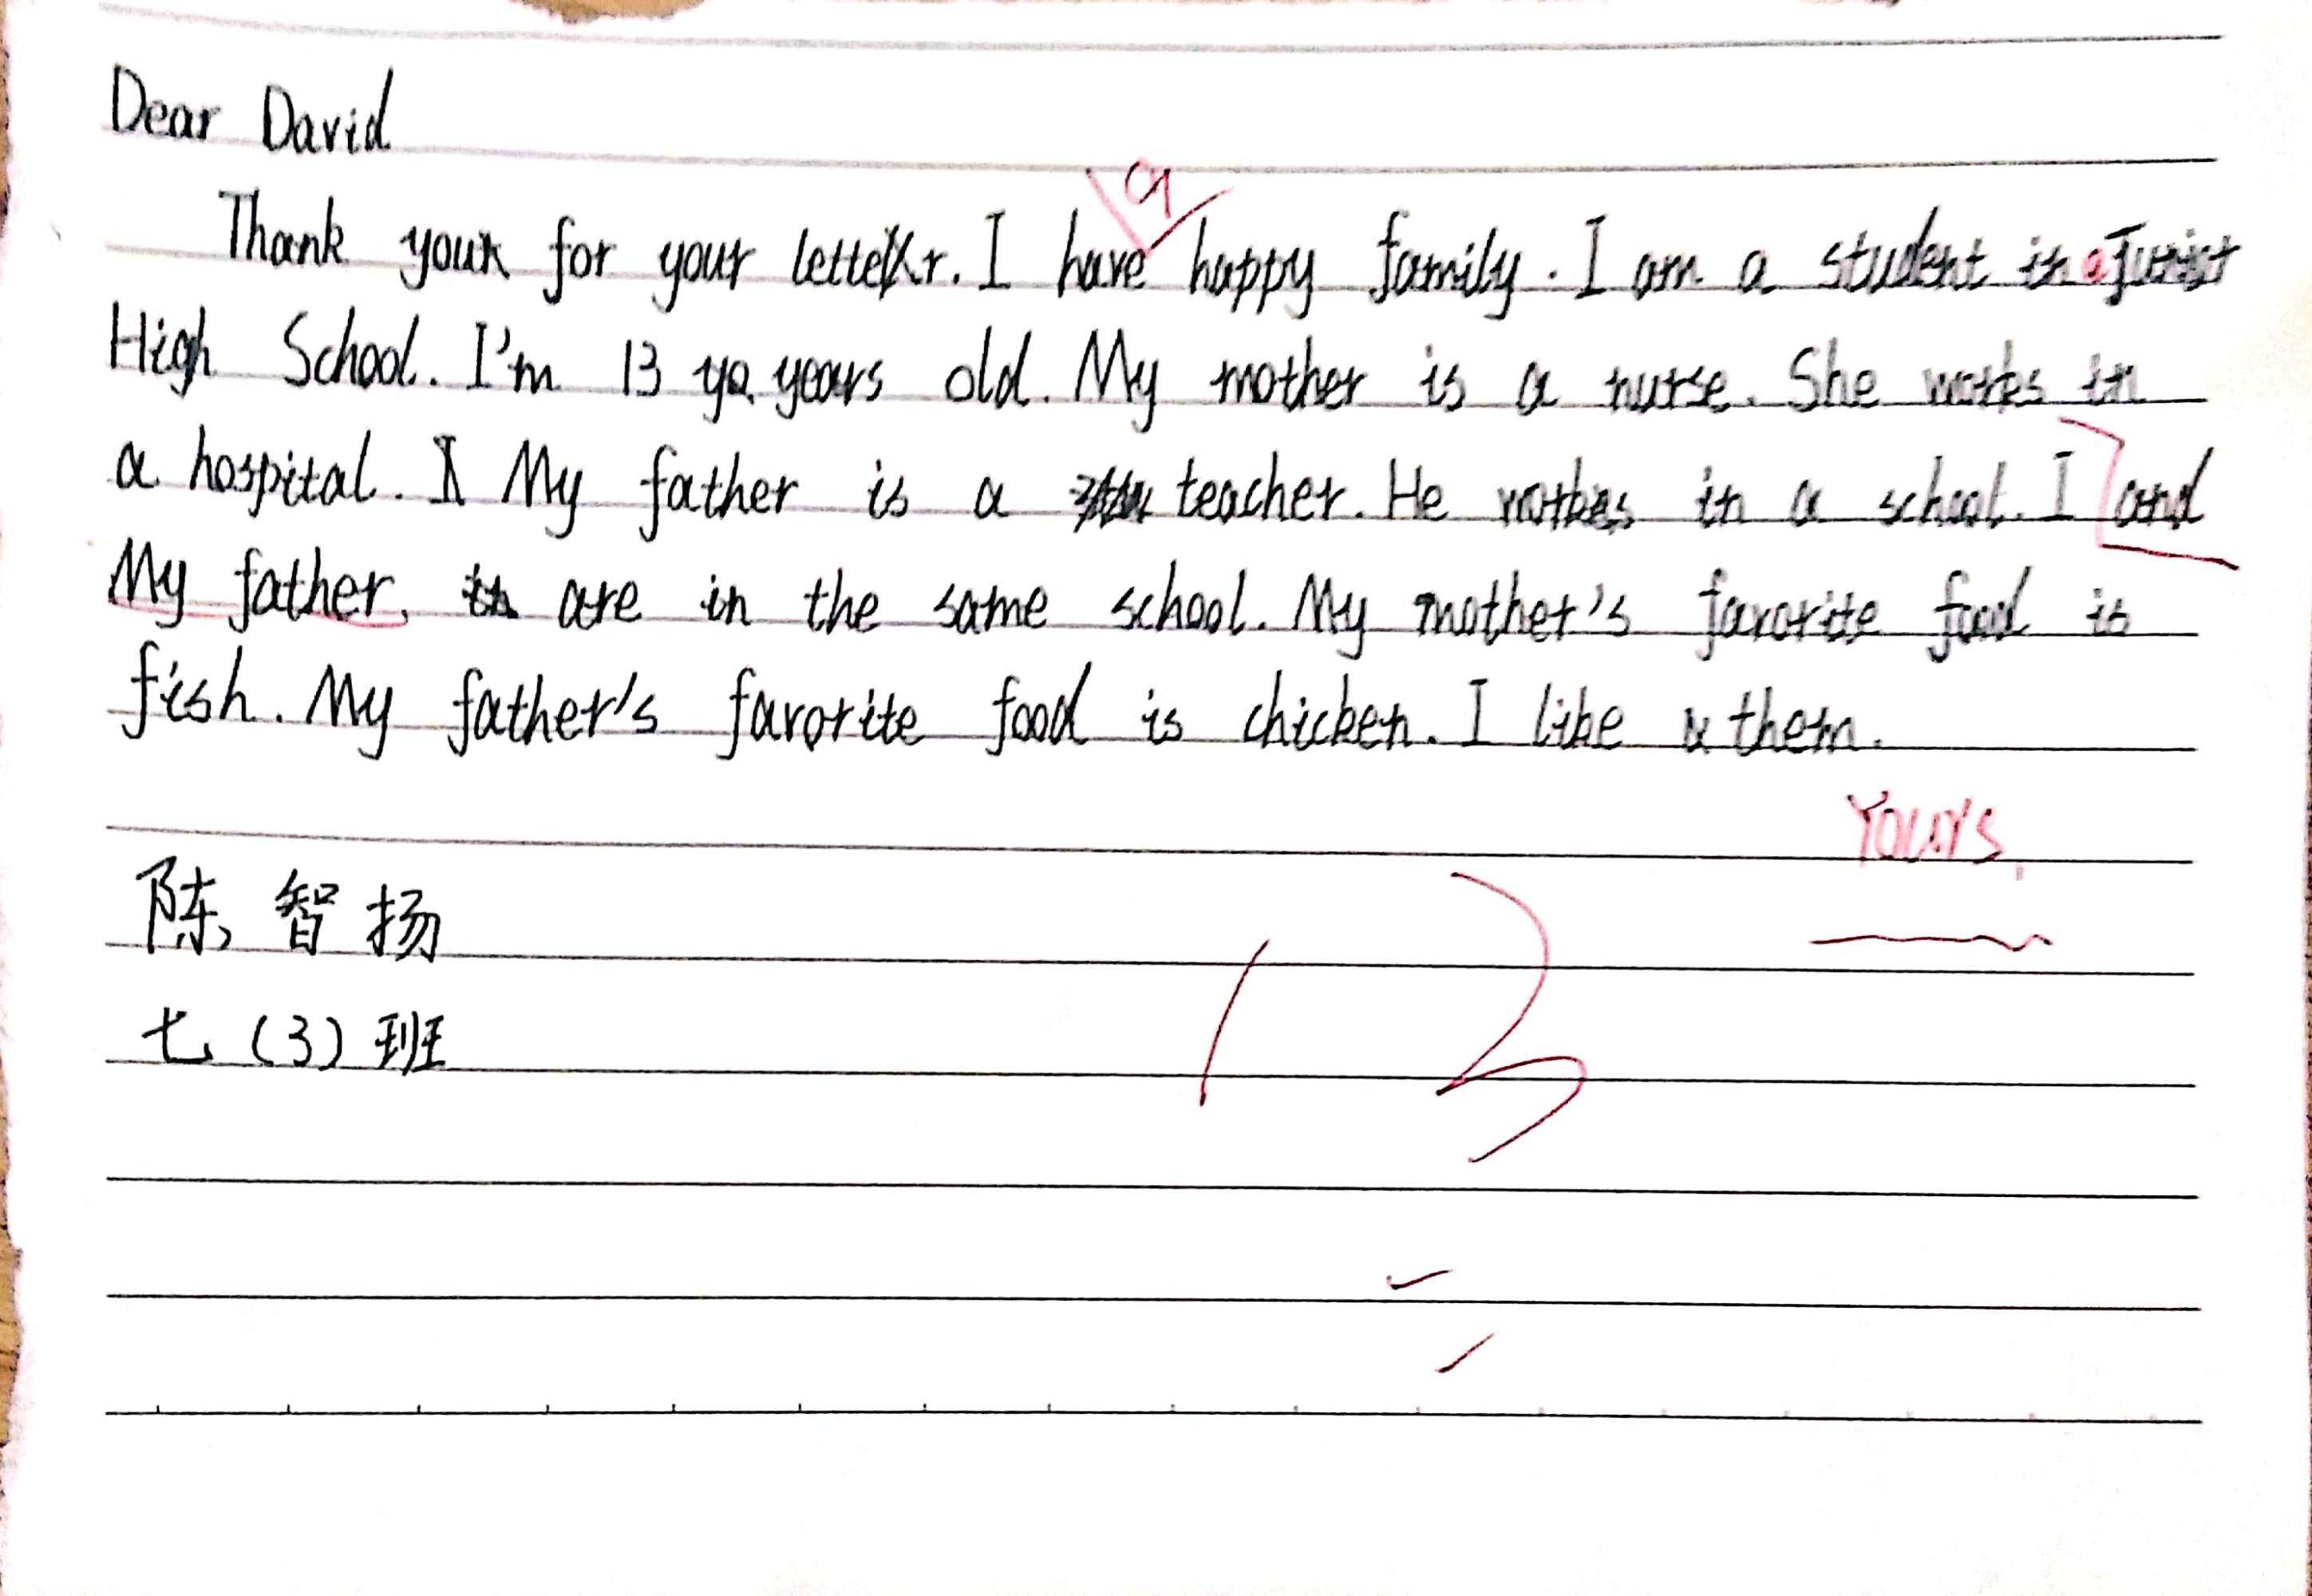 Dear David
a
Thank you for your letter. I have happy family. I am a student in a Junior
High School. I'm 13 ya years old. My mother is a nurse. She works in
a hospital. My father is a teacher. He works in a school. I and
My father, are in the same school. My mother's favorite food is
fish. My father's favorite food is chicken. I like them.
Yours,
陈智扬
七(3)班
13